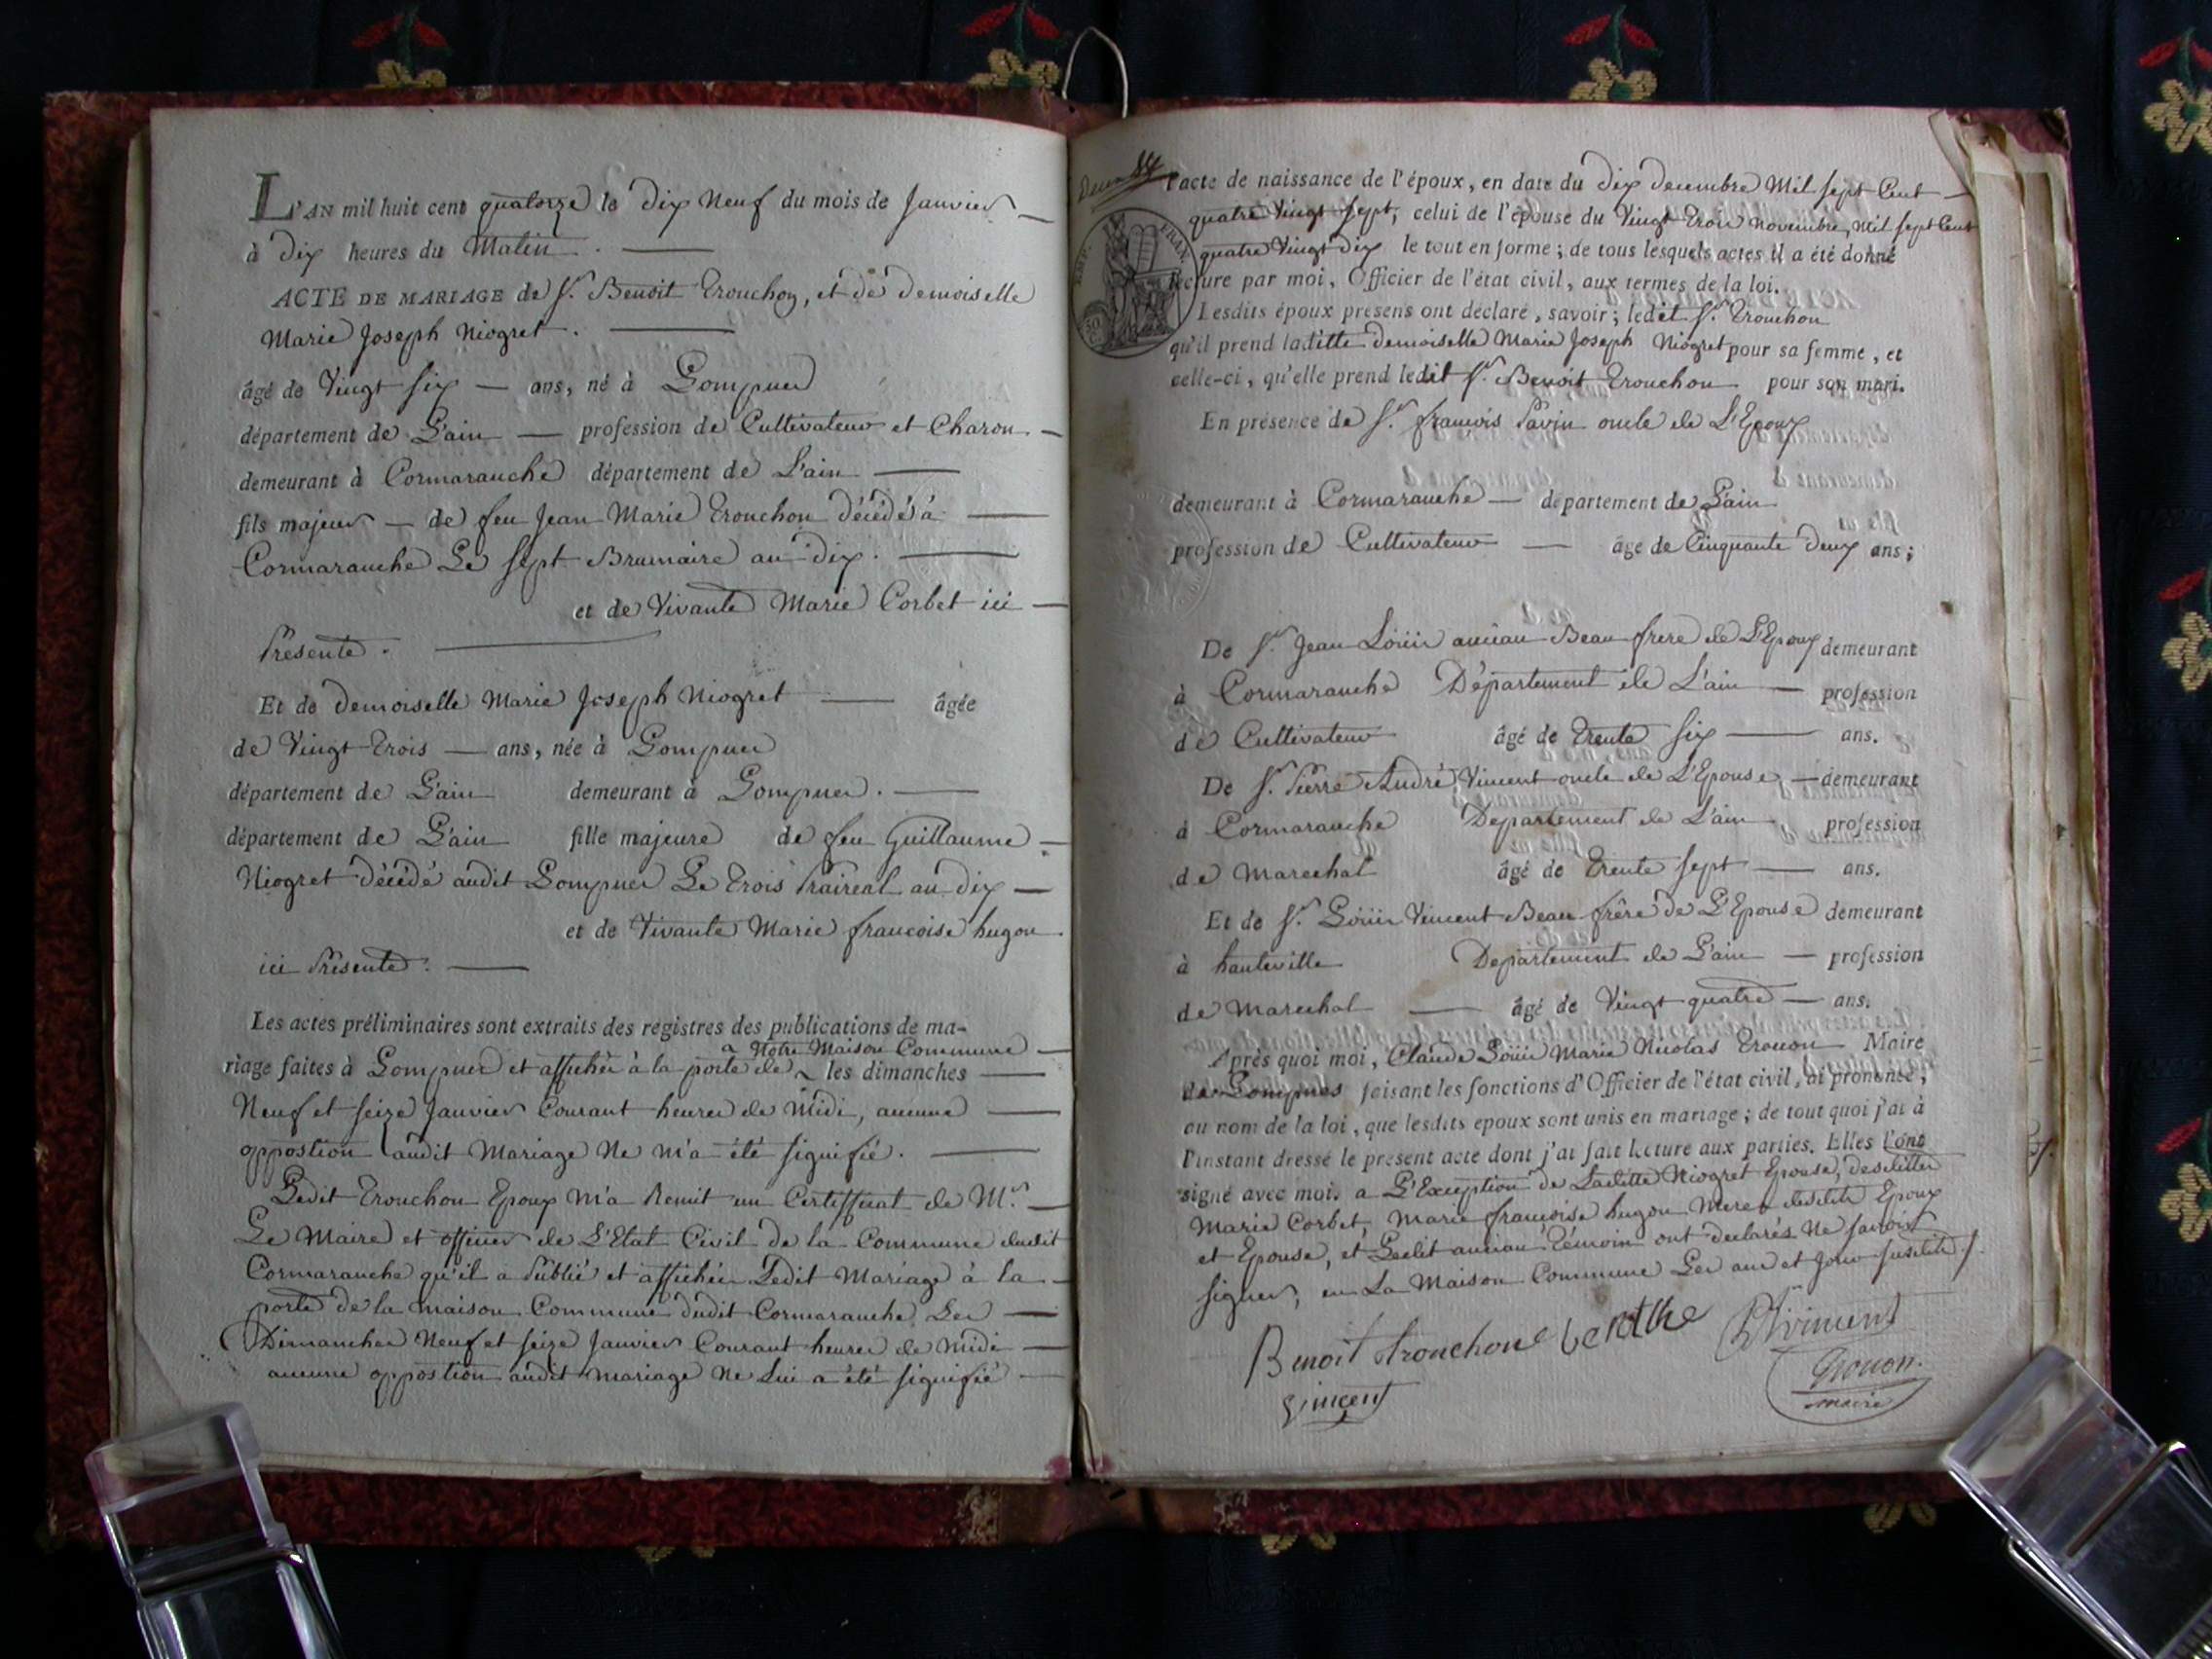 L'AN mil huit cent quatorze le dix Neuf du mois de Janvier
à dix heures du Matin.
ACTE DE MARIAGE de Sr. Benoit Trouchon, et de demoiselle
Marie Joseph Niogret.
âgé de Vingt six — ans, né à Lompnes
département de L'ain — profession de Cultivateur et Charon
demeurant à Cormaranche département de L'ain
fils majeur — de feu Jean Marie Trouchon décédé à
Cormaranche Le sept Brumaire an dix.
et de Vivante Marie Corbet ici
Présente.
Et de demoiselle Marie Joseph Niogret — âgée
de Vingt Trois — ans, née à Lompnes
département de L'ain demeurant à Lompnes.
département de L'ain fille majeure de feu Guillaume
Niogret décédé audit Lompnes Le Trois Prairéal an dix
et de Vivante Marie francoise hugon
ici Présente.
Les actes préliminaires sont extraits des registres des publications de ma-
a Notre Maison Commune
riage faites à Lompnes et affichés à la porte de les dimanches
Neuf et seize Janvier Courant heures de Midi, aucune
oppostion audit Mariage Ne m'a été signifié.
Ledit Trouchon Epoux m'a Remit un Certifficat de Mr.
Le Maire et officier de L'Etat Civil de la Commune dudit
Cormaranche qu'il a Publié et affichée Ledit Mariage à la
porte de la maison Commune dudit Cormaranche Les
Dimanches Neuf et seize Janvier Courant heures de midi
aucune oppostion audit mariage Ne Lui a été signifié
l'acte de naissance de l'époux, en date du dix decembre Mil sept Cent
quatre Vingt sept, celui de l'épouse du Vingt Trois Novembre, Mil sept Cent
quatre Vingt dix le tout en forme; de tous lesquels actes il a été donné
EMP. FRAN.
lecture par moi, Officier de l'état civil, aux termes de la loi.
Lesdits époux présens ont déclaré, savoir; ledit Sr. Trouchon
qu'il prend laditte demoiselle Marie Joseph Niogret pour sa femme, et
celle-ci, qu'elle prend ledit Sr. Benoit Trouchon pour son mari.
En présence de Sr. francois Savin oncle de L'Epoux
demeurant à Cormaranche — département de L'ain
profession de Cultivateur — âgé de Cinquante deux ans;
De Sr. Jean Loüis ancian Beau frere de L'Epoux demeurant
à Cormaranche Département de L'ain — profession
de Cultivateur âgé de Trente six — ans.
De Sr. Pierre André Vincent oncle de L'Epouse — demeurant
à Cormaranche Departement de L'ain profession
de Marechal âgé de Trente sept — ans.
Et de Sr. Loüis Vincent Beau frêre de L'Epouse demeurant
à hauteville Departement de L'ain — profession
de Marechal — âgé de Vingt quatre — ans.
Après quoi moi, Claude Loüis Marie Nicolas Trouon Maire
de Lompnes faisant les fonctions d'Officier de l'état civil, ai prononcé,
au nom de la loi, que lesdits epoux sont unis en mariage; de tout quoi j'ai à
l'instant dressé le présent acte dont j'ai fait lecture aux parties. Elles l'ont
signé avec moi. a L'Exception de Laditte Niogret Epouse, desdittes
Marie Corbet, Marie françoise hugon Meres desdits Epoux
et Epouse, et Ledit ancian Témoin ont declarés Ne savoir
signer, en La Maison Commune Les an et Jour susdits
Benoit trouchon
vincent
Trouon
maire